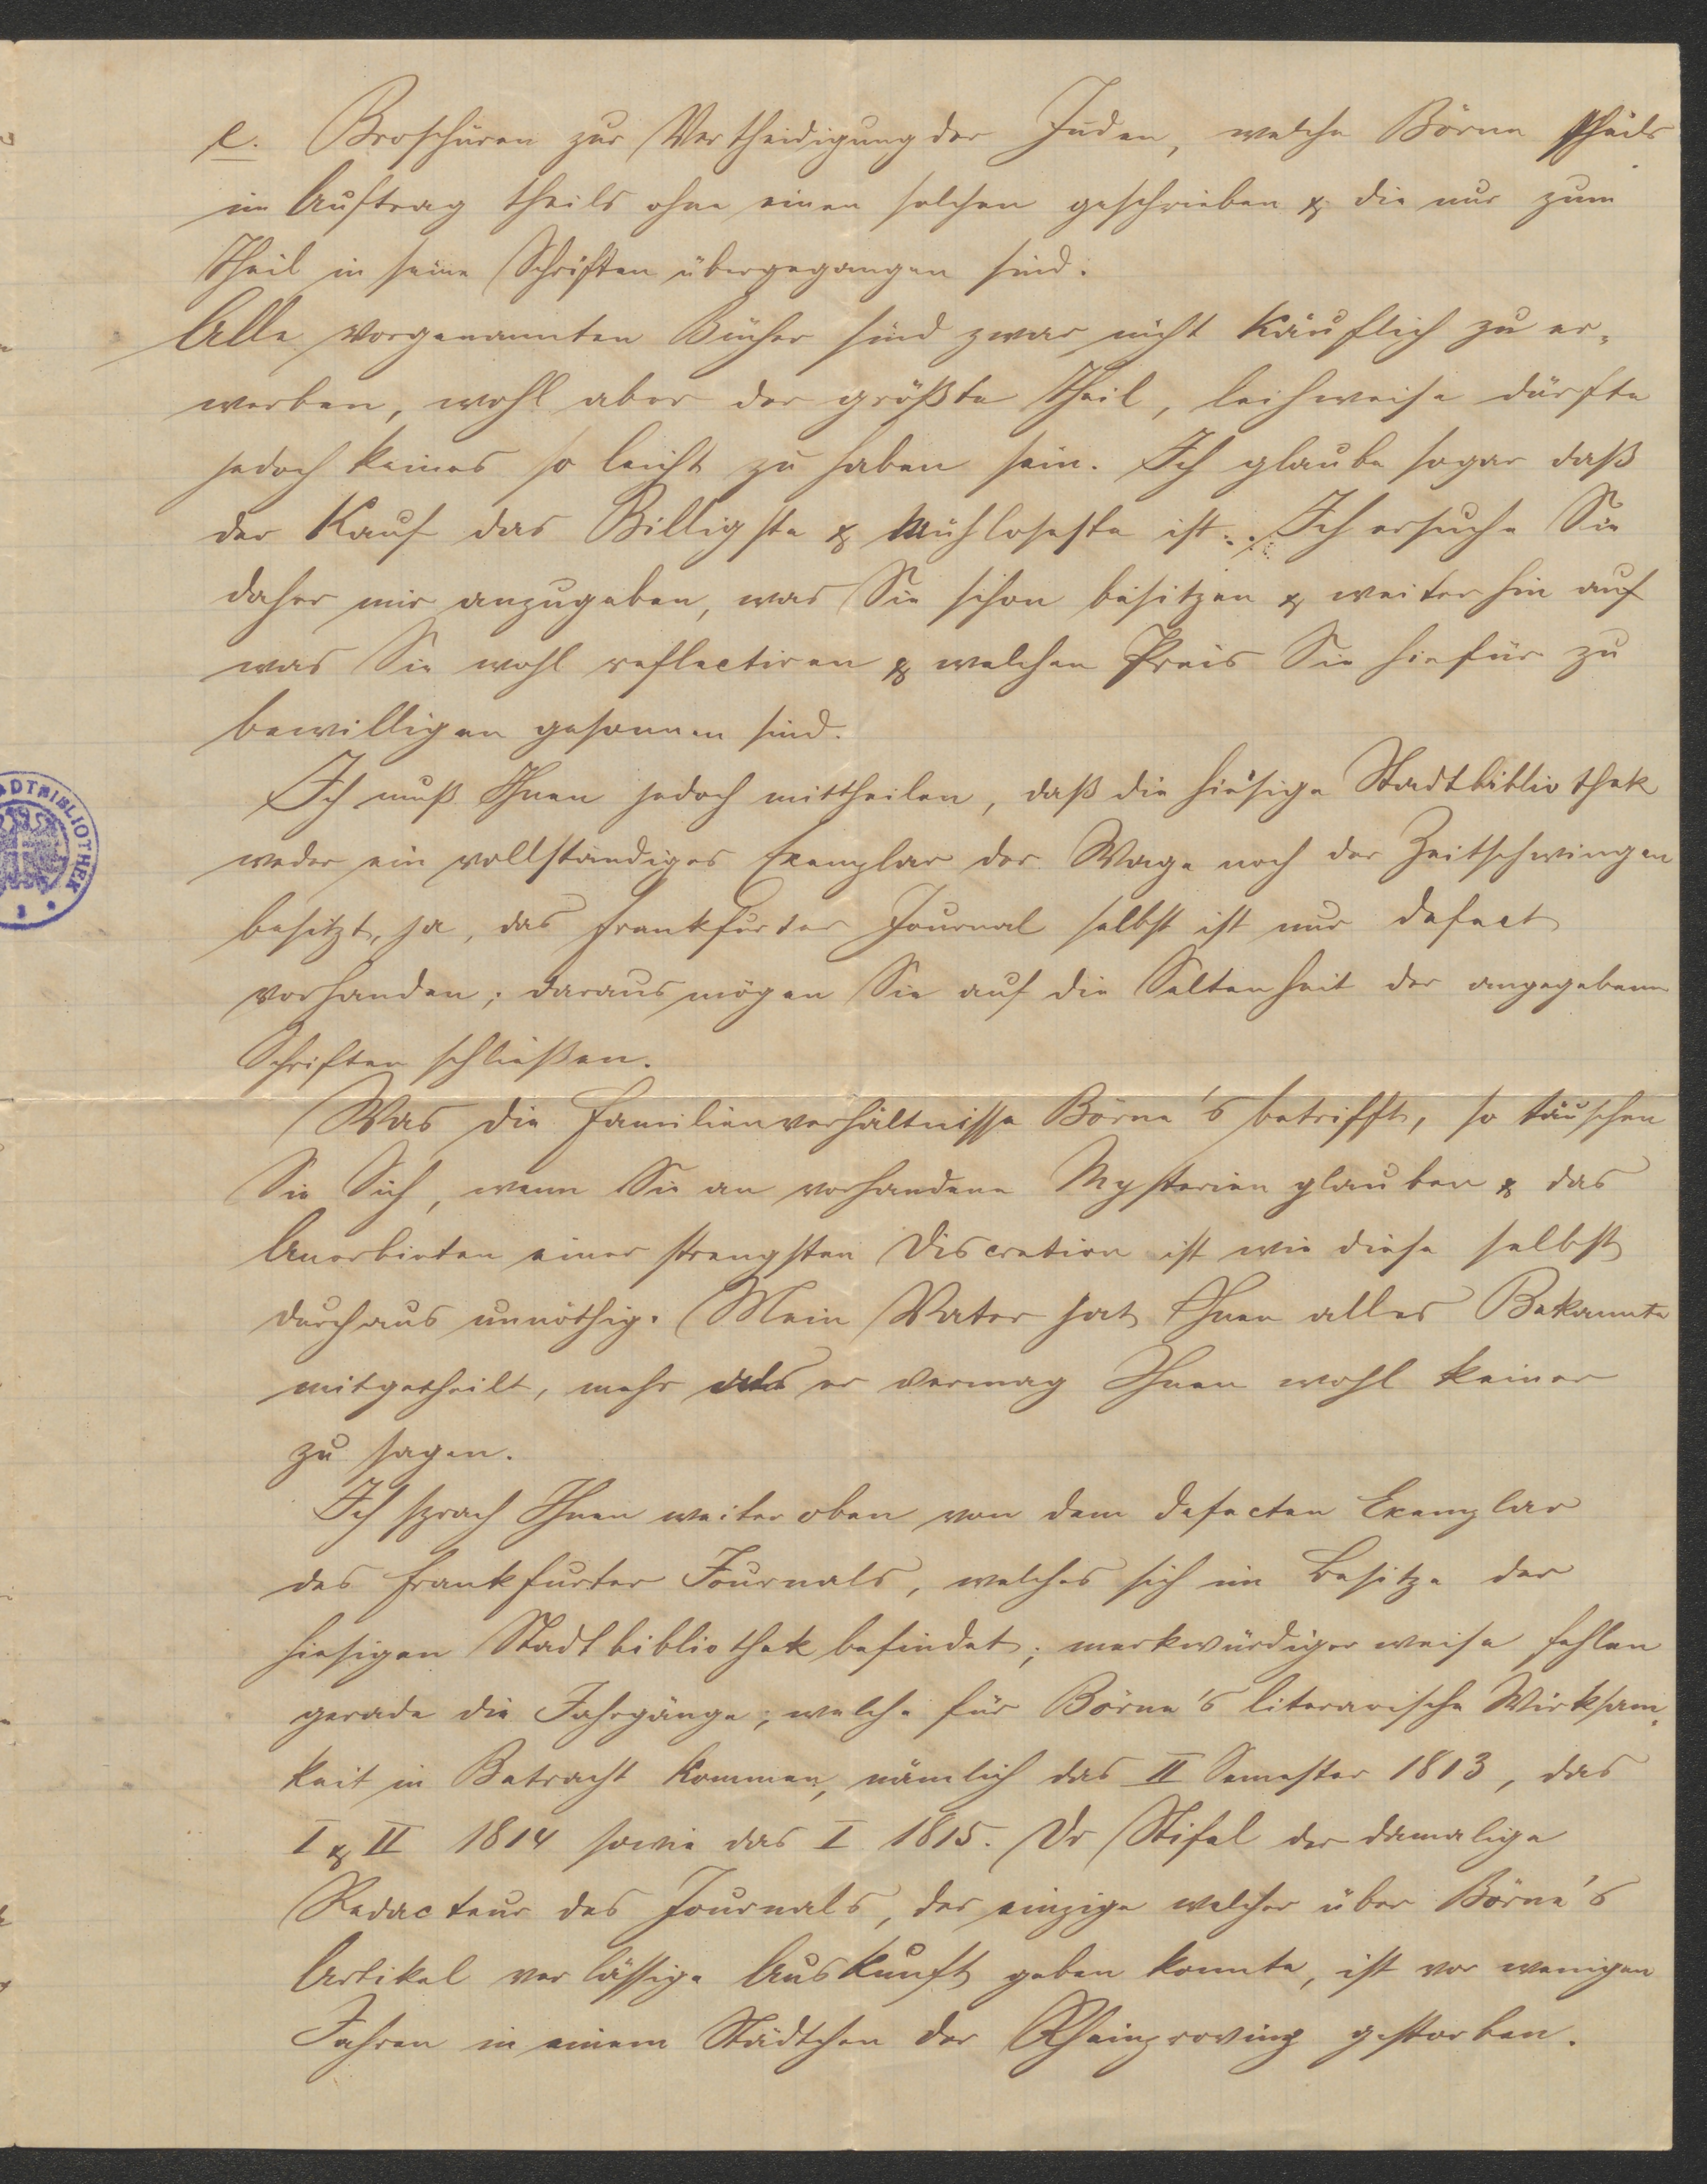 e. Broschüren zur Vertheidigung der Juden, welche Börne theils
im Auftrag theils ohne einen solchen geschrieben & die nur zum
Theil in seine Schriften übergegangen sind.
Alle vorgenannten Bücher sind zwar nicht käuflich zu er-
werben, wohl aber der größte Theil, leihweise dürfte
jedoch keines so leicht zu haben sein. Ich glaube sogar daß
der Kauf das Billigste & Mühloseste ist. Ich ersuche Sie
daher mir anzugeben, was Sie schon besitzen & weiterhin auf
was Sie wohl reflectiren & welchen Preis Sie hiefür zu
bewilligen gesonnen sind.
Ich muß Ihnen jedoch mittheilen, daß die hiesige Stadtbibliothek
weder ein vollständiges Exemplar der Wage noch der Zeitschwingen
besitzt, ja, das Frankfurter Journal selbst ist nur defect
vorhanden; daraus mögen Sie auf die Seltenheit der angegebenen
Schriften schließen.
Was die Familienverhältnisse Börne's betrifft, so täuschen
Sie Sich, wenn Sie an vorhandene Mysterien glauben & das
Anerbieten einer strengsten Discretion ist wie diese selbst
durchaus unnöthig. Mein Vater hat Ihnen alles Bekannte
mitgetheilt, mehr als er vermag Ihnen wohl keiner
zu sagen.
Ich sprach Ihnen weiter oben von dem defecten Exemplar
des Frankfurter Journals, welches sich im Besitze der
hiesigen Stadtbibliothek befindet; merkwürdiger weise fehlen
gerade die Jahrgänge, welche für Börne's literarische Wirksam-
keit in Betracht kommen, nämlich das II Semester 1813, das
I & II 1814 sowie das I 1815. Dr Stifel der damalige
Redacteur des Journals, der einzige welcher über Börne's
Artikel verlässige Auskunft geben konnte, ist vor wenigen
Jahren in einem Städtchen der Rheinprovinz gestorben.
ADTBIBLIOTHEK